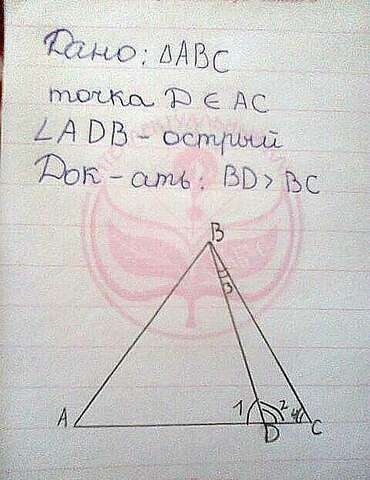 Дано: ΔABC
точка D ∈ AC
∠ADB - острый
Док-ать: BD > BC
B
3
A 1 2 4 C
D